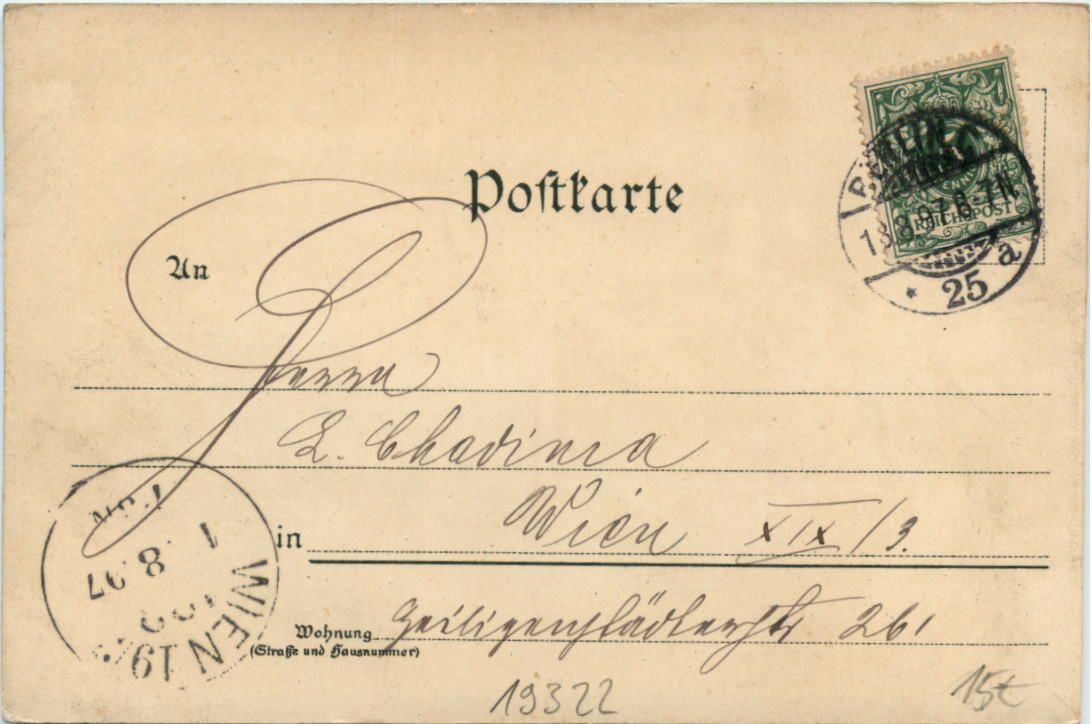 Postkarte
An
BERLIN C
18.8.97.6-7N.
REICHSPOST
* 25 a
Herrn
L. Chadima
Wien XIX/3.
in
Wohnung
(Straße und Hausnummer)
Heiligenstädterstr 26.
WIEN
19
8.97
19322
15€